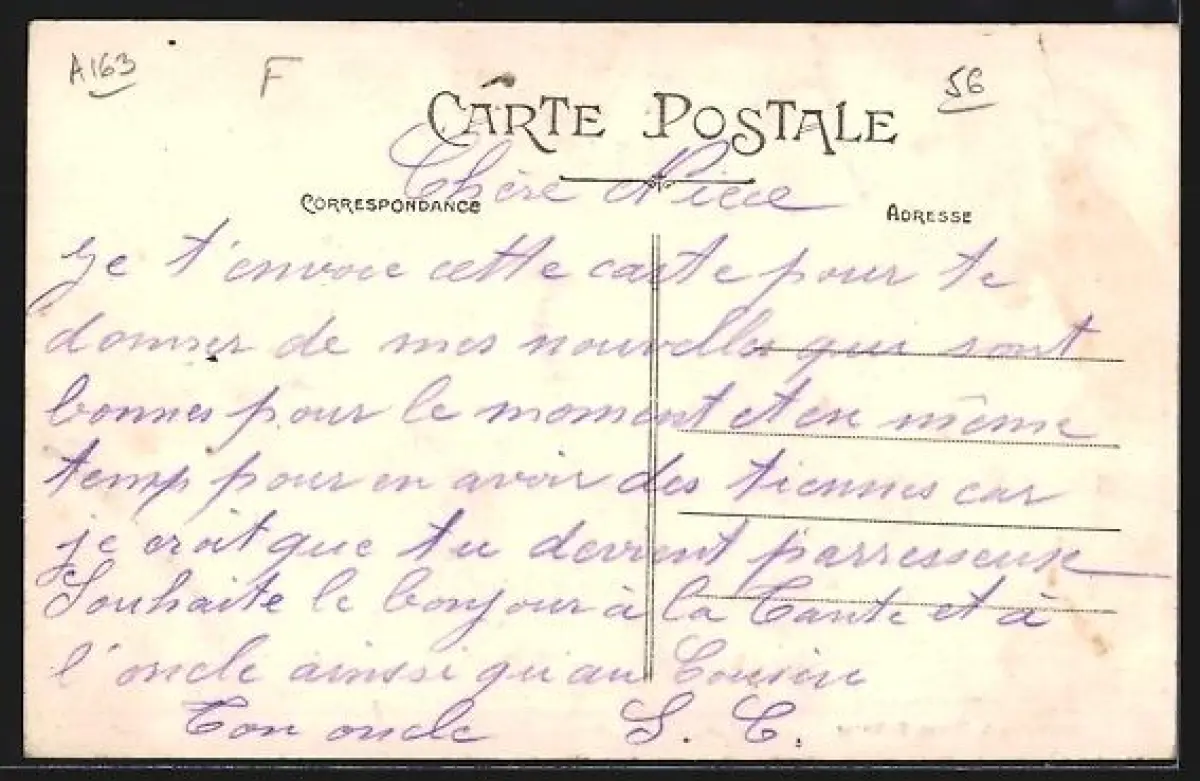 A163
F
56
CARTE POSTALE
Chère Niece
CORRESPONDANCE
ADRESSE
Je t'envoie cette carte pour te
donner de mes nouvelles qui sont
bonnes pour le moment et en même
temp pour en avoir des tiennes car
je croit que tu devient parresseuse
Souhaite le bonjour à la Tante et à
l'oncle ainssi qu'au Cousin
Ton oncle S. C.